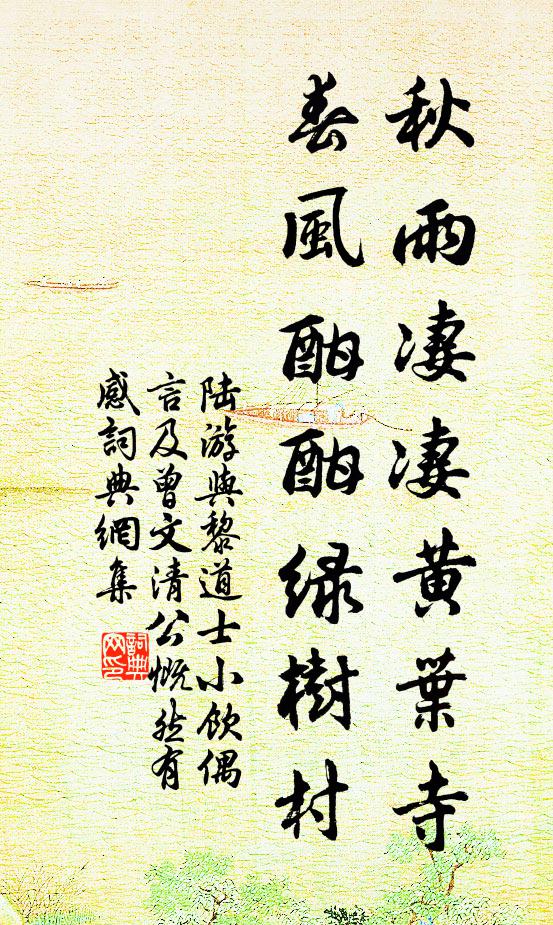 秋雨凄凄黄葉寺
春風酣酣緑樹村
陆游與黎道士小飲偶
言及曾文清公慨然有
感詞典網集
詞典
网印